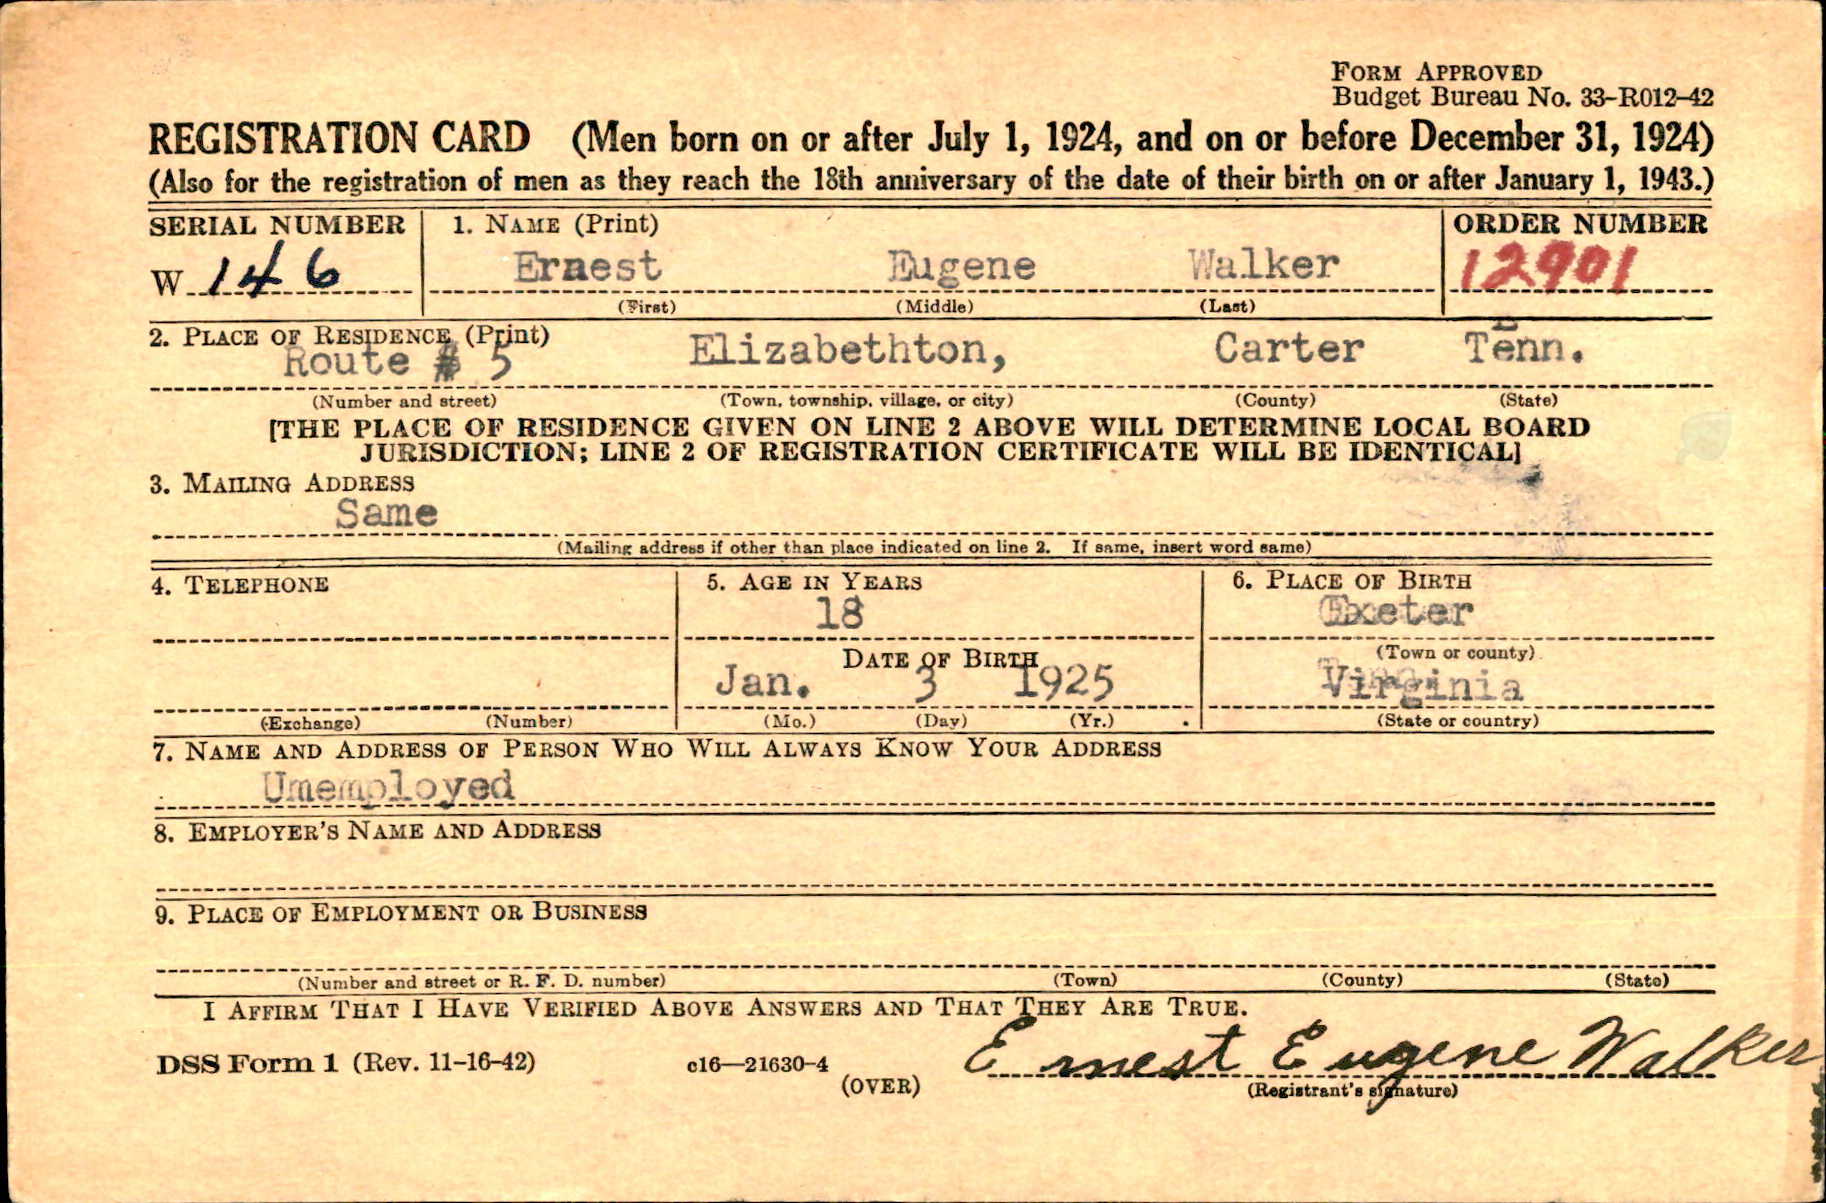 FORM APPROVED
Budget Bureau No. 33-R012-42
REGISTRATION CARD (Men born on or after July 1, 1924, and on or before December 31, 1924)
(Also for the registration of men as they reach the 18th anniversary of the date of their birth on or after January 1, 1943.)
SERIAL NUMBER 1. NAME (Print) ORDER NUMBER
W 146 Ernest Eugene Walker 12901
(First) (Middle) (Last)
2. PLACE OF RESIDENCE (Print)
Route # 5 Elizabethton, Carter Tenn.
(Number and street) (Town, township, village, or city) (County) (State)
[THE PLACE OF RESIDENCE GIVEN ON LINE 2 ABOVE WILL DETERMINE LOCAL BOARD
JURISDICTION; LINE 2 OF REGISTRATION CERTIFICATE WILL BE IDENTICAL]
3. MAILING ADDRESS
Same
(Mailing address if other than place indicated on line 2. If same, insert word same)
4. TELEPHONE 5. AGE IN YEARS 6. PLACE OF BIRTH
18 Exeter
(Town or county)
DATE OF BIRTH
Jan. 3 1925 Virginia
(Exchange) (Number) (Mo.) (Day) (Yr.) (State or country)
7. NAME AND ADDRESS OF PERSON WHO WILL ALWAYS KNOW YOUR ADDRESS
Umemployed
8. EMPLOYER'S NAME AND ADDRESS
9. PLACE OF EMPLOYMENT OR BUSINESS
(Number and street or R. F. D. number) (Town) (County) (State)
I AFFIRM THAT I HAVE VERIFIED ABOVE ANSWERS AND THAT THEY ARE TRUE.
DSS Form 1 (Rev. 11-16-42) c16—21630-4 Ernest Eugene Walker
(OVER) (Registrant's signature)